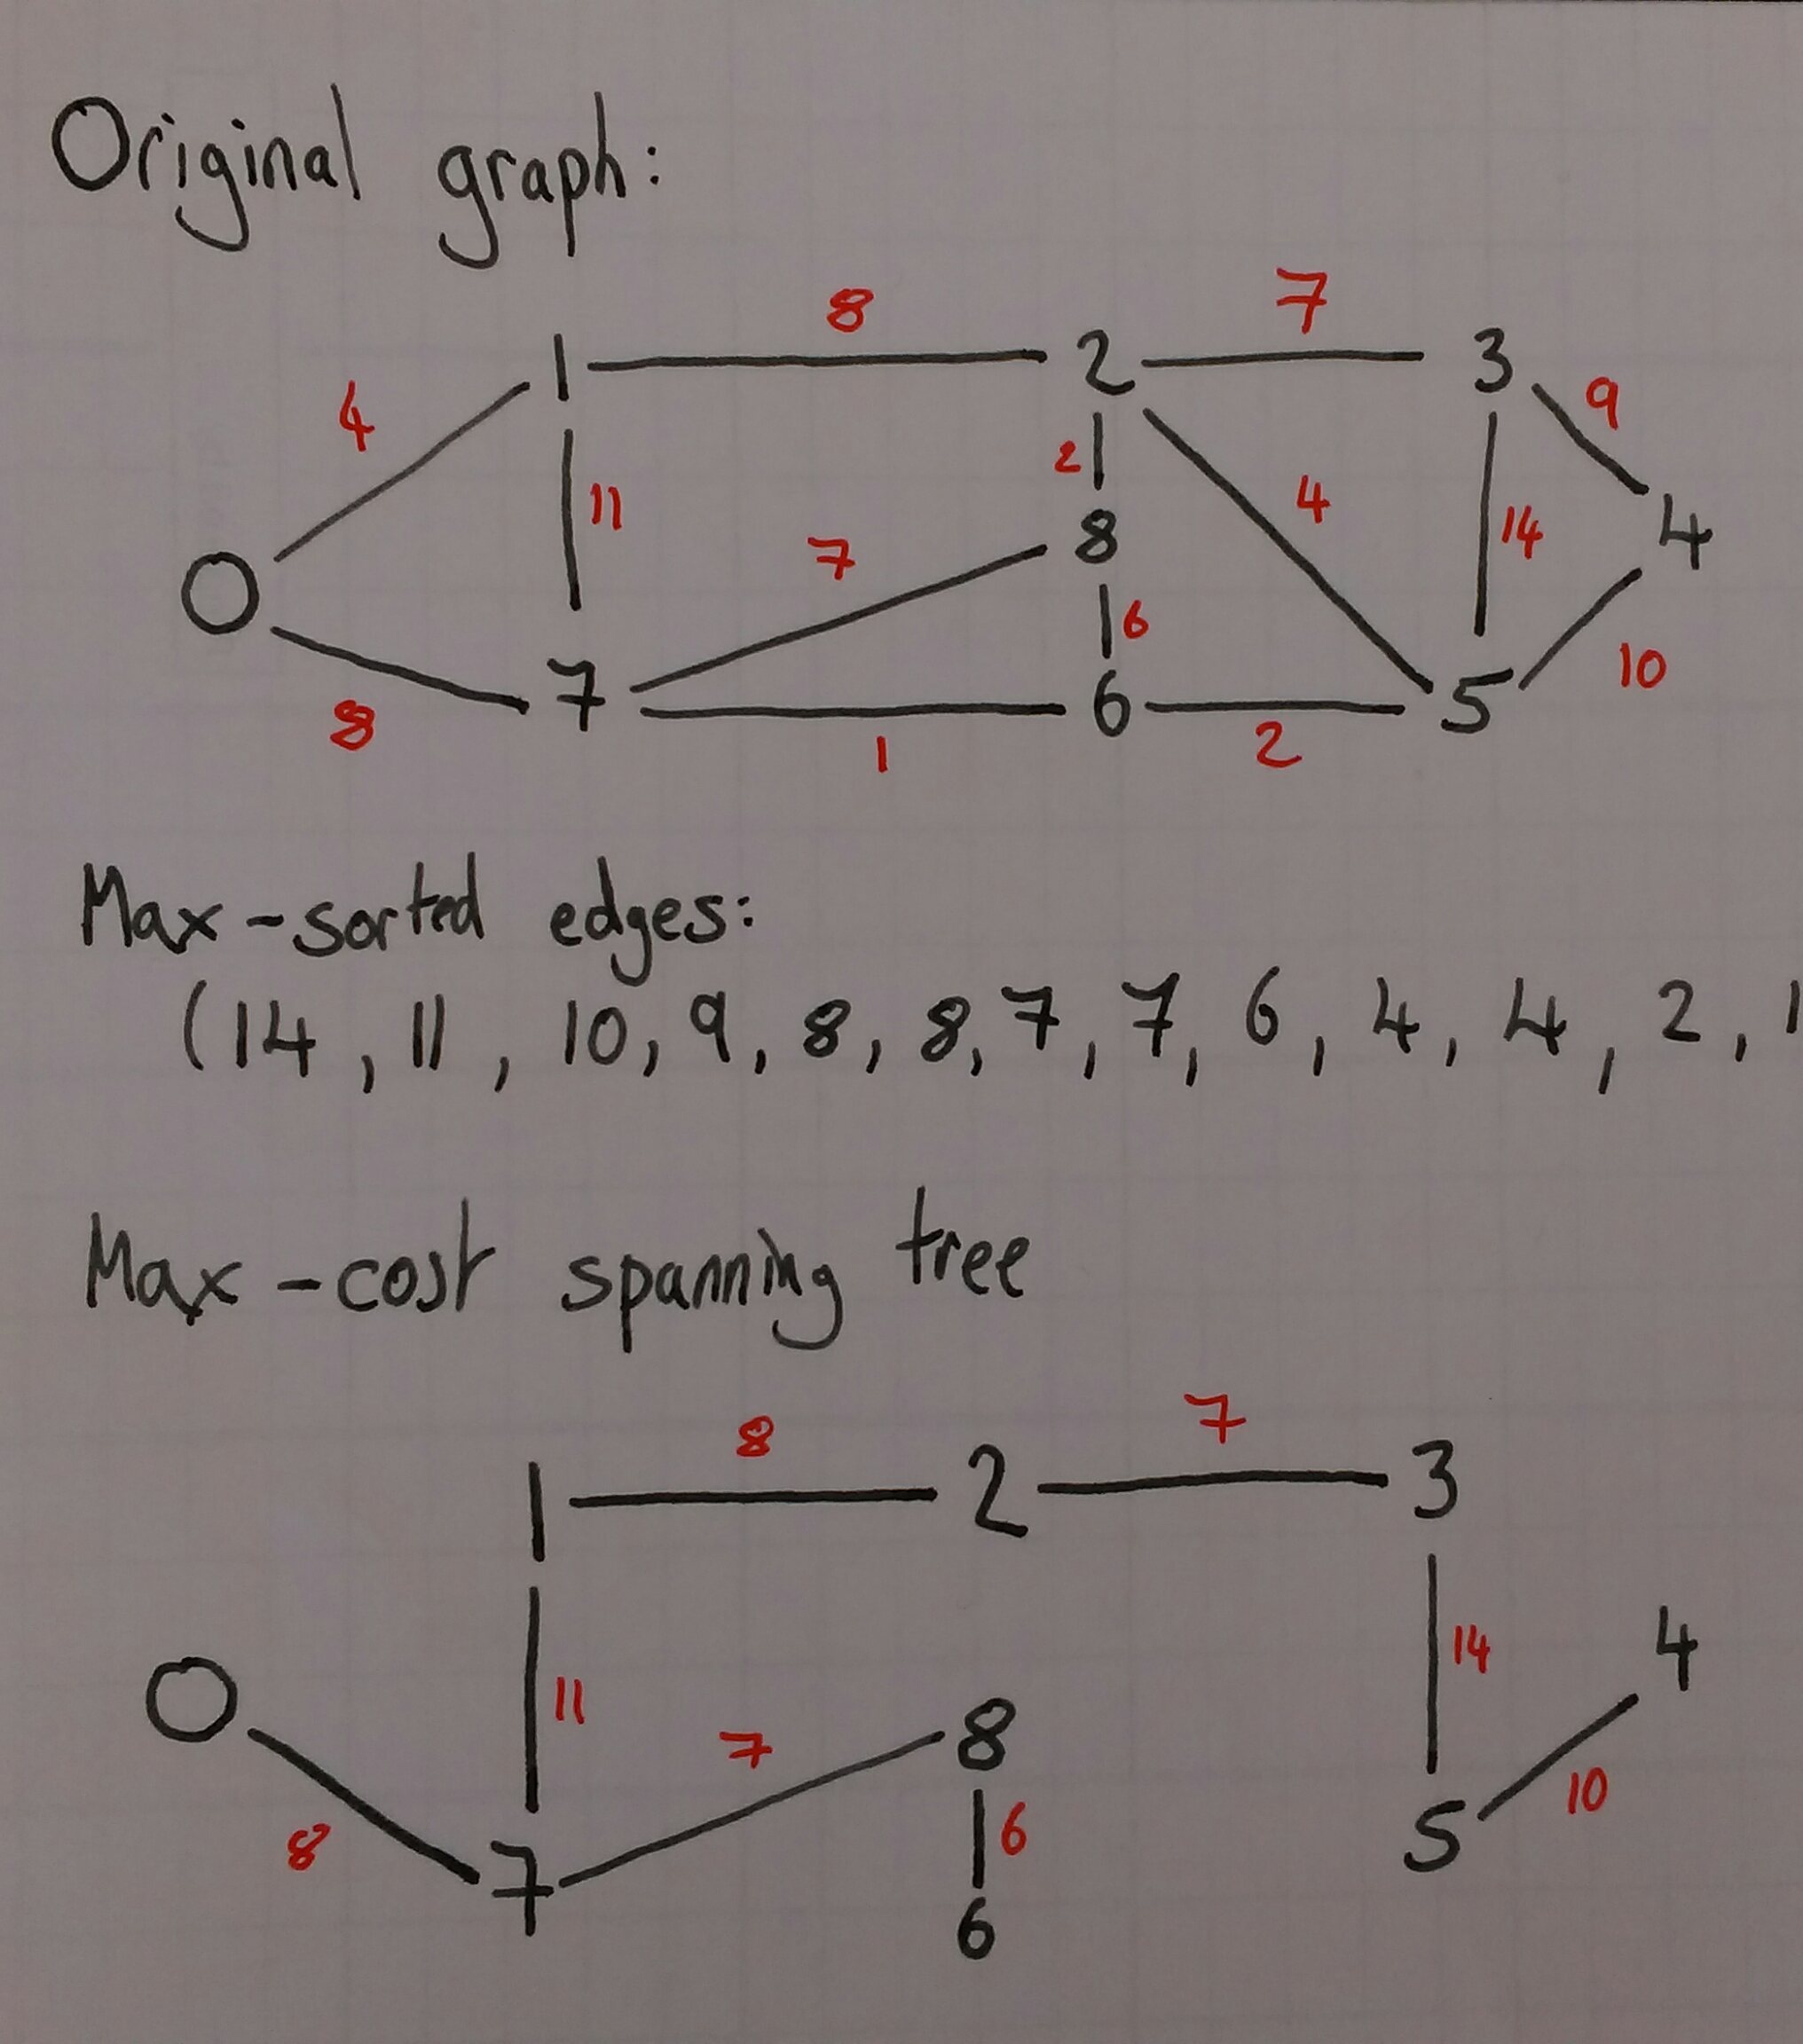 Original graph:
8 7
1 2 3
4 9
2
11 4 14 4
7 8
0
6
10
7 6 5
8 1 2
Max-sorted edges:
(14, 11, 10, 9, 8, 8, 7, 7, 6, 4, 4, 2, 1
Max-cost spanning tree
8 7
1 2 3
4
14
0 11 7 8
10
8 6
7 5
6